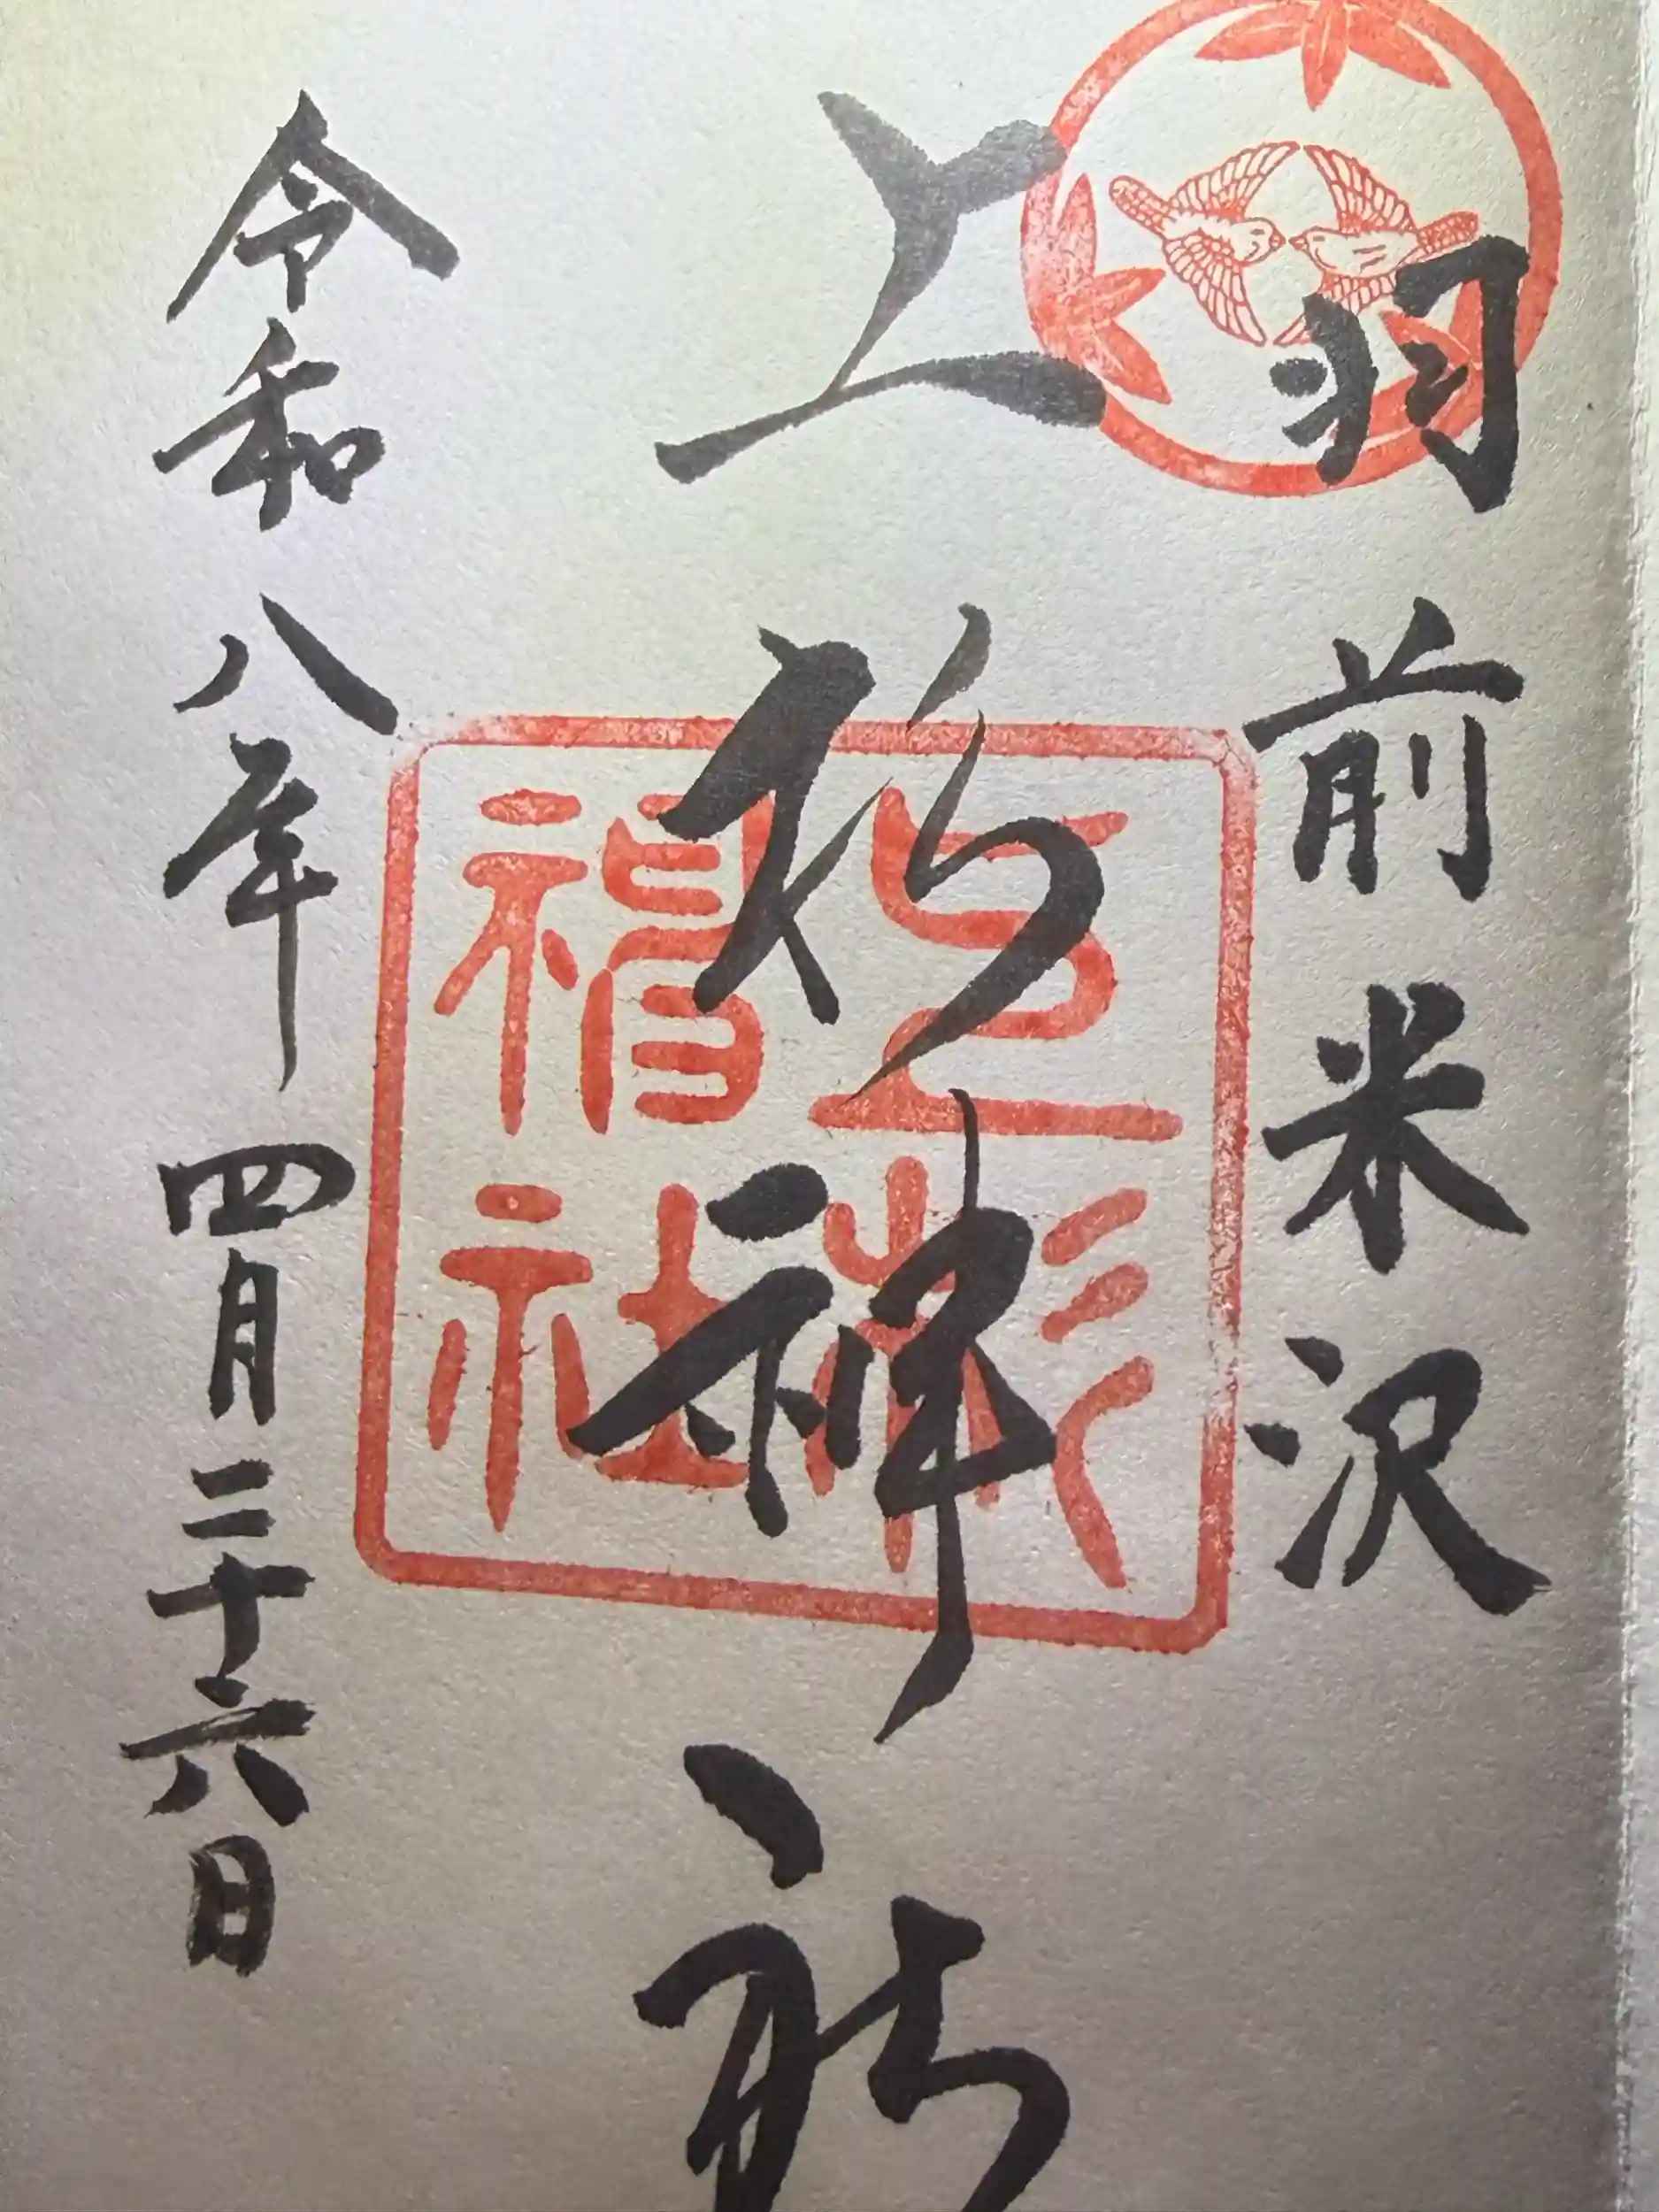 羽前米沢
上杉神社
上杉
神社
令和八年四月二十六日